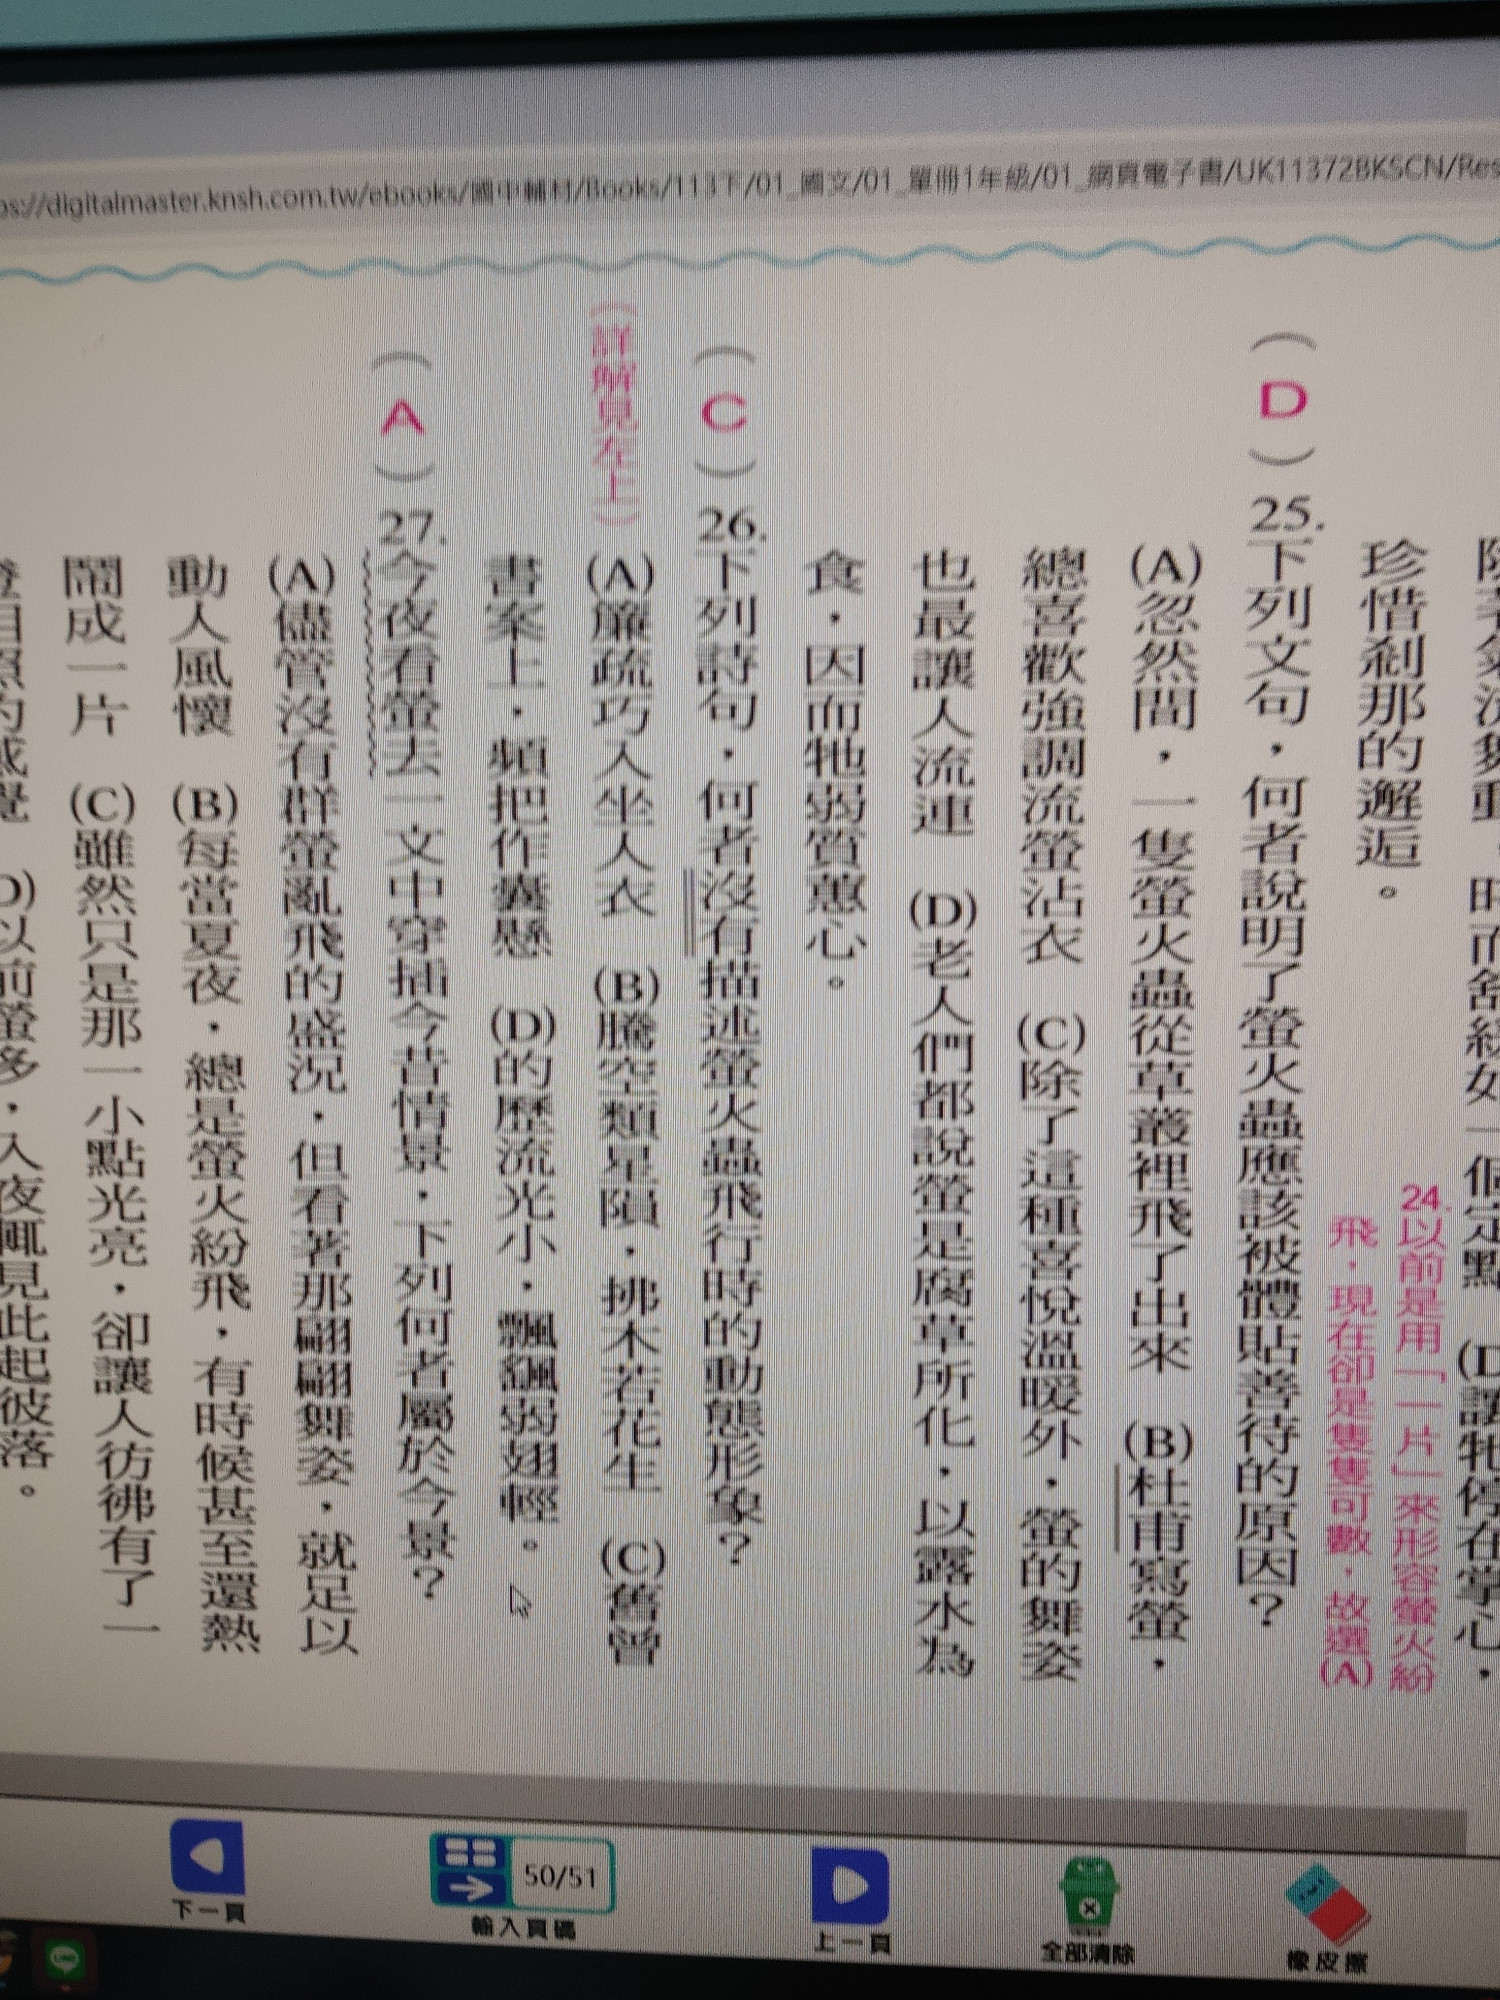 珍惜剎那的邂逅。
24.以前是用「一片」來形容螢火紛
飛，現在卻是隻隻可數，故選(A)
(D)25.下列文句，何者說明了螢火蟲應該被體貼善待的原因？
(A)忽然間，一隻螢火蟲從草叢裡飛了出來　(B)杜甫寫螢，
總喜歡強調流螢沾衣　(C)除了這種喜悅溫暖外，螢的舞姿
也最讓人流連　(D)老人們都說螢是腐草所化，以露水為
食，因而牠弱質蕙心。
(C)26.下列詩句，何者沒有描述螢火蟲飛行時的動態形象？
(詳解見左上)
(A)簾疏巧入坐人衣　(B)騰空類星隕，拂木若花生　(C)舊曾
書案上，頻把作囊懸　(D)的歷流光小，飄颻弱翅輕。
(A)27.今夜看螢去一文中穿插今昔情景，下列何者屬於今景？
(A)儘管沒有群螢亂飛的盛況，但看著那翩翩舞姿，就足以
動人風懷　(B)每當夏夜，總是螢火紛飛，有時候甚至還熱
鬧成一片　(C)雖然只是那一小點光亮，卻讓人彷彿有了一
(D)以前螢多，入夜輒見此起彼落。
digitalmaster.knsh.com.tw/ebooks/國中輔材/Books/113下/01_國文/01_單冊1年級/01_網頁電子書/UK11372BKSCN/Res
下一頁
50/51
輸入頁碼
上一頁
全部清除
橡皮擦